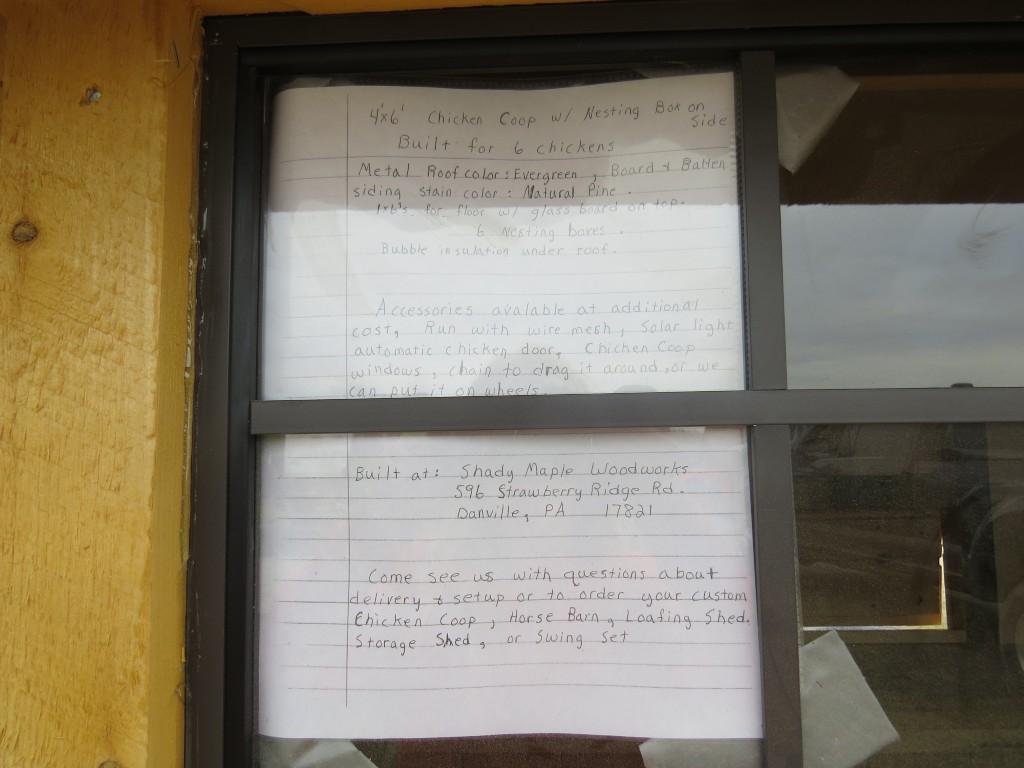 4'x6' Chicken Coop w/ Nesting Box on
Side
Built for 6 chickens
Metal Roof color: Evergreen, Board & Batten
siding stain color: Natural Pine.
1x6's for floor w/ glass board on top.
6 Nesting boxes.
Bubble insulation under roof.
Accessories available at additional
cost, Run with wire mesh, Solar light
automatic chicken door, Chicken Coop
windows, chain to drag it around, or we
can put it on wheels.
Built at: Shady Maple Woodworks
596 Strawberry Ridge Rd.
Danville, PA 17821
Come see us with questions about
delivery & setup or to order your custom
Chicken Coop, Horse Barn, Loafing Shed.
Storage Shed, or Swing Set